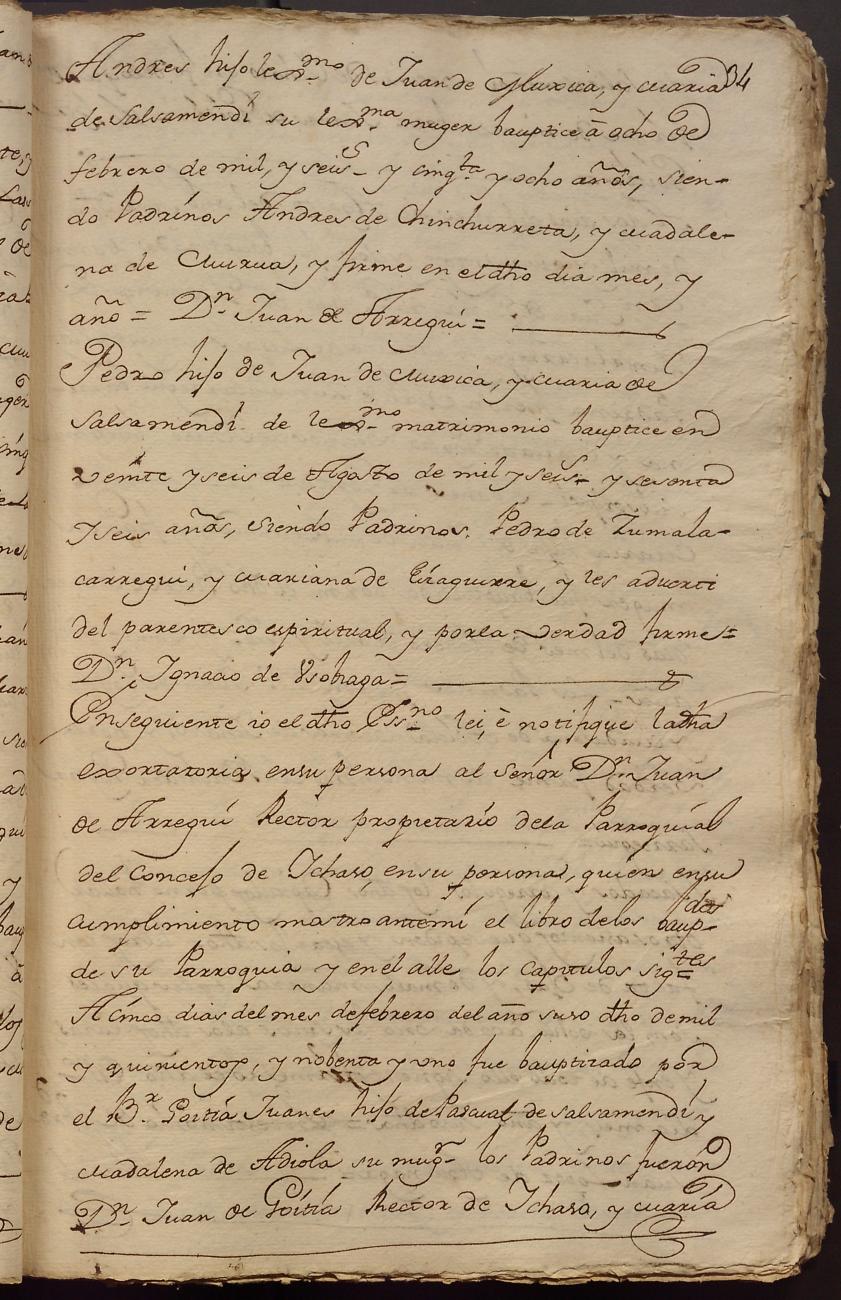 34
Andres hijo lexmo de Juan de Muxica, y Maria
de Salsamendi su lexma muger bauptice â ocho de
febrero de mil, y seiss y cingta y ocho años, sien-
do Padrinos Andres de Chinchurreta, y Madale-
na de Murua, y firme en el dho dia mes, y
año = Dn Juan de Arregui =
Pedro hijo de Juan de Muxica, y Maria de
Salsamendi de lexmo matrimonio bauptice en
veinte y seis de Agosto de mil y seiss y sesenta
y seis años, siendo Padrinos Pedro de Zumala-
carregui, y Mariana de Eizaguirre, y les adverti
del parentesco espiritual, y por la verdad firme =
Dn Ignacio de Usobiaga =
Enseguiente io el dho Essno lei, è notifique la dha
exortatoria en su persona al señor Dn Juan
de Arregui Rector propietario dela Parroquial
del Concejo de Ichaso, en su persona, quien en su
cumplimiento mostro antemi el libro delos baupdos
de su Parroquia y en el alle los capitulos sigtes
A cinco dias del mes defebrero del año suso dho de mil
y quinientos, y nobenta y uno fue bauptizado por
el Br Goitia Juanes hijo de Pascual de Salsamendi y
Madalena de Adiola su mugr los Padrinos fueron
Dn Juan de Goitia Rector de Ichaso, y Maria